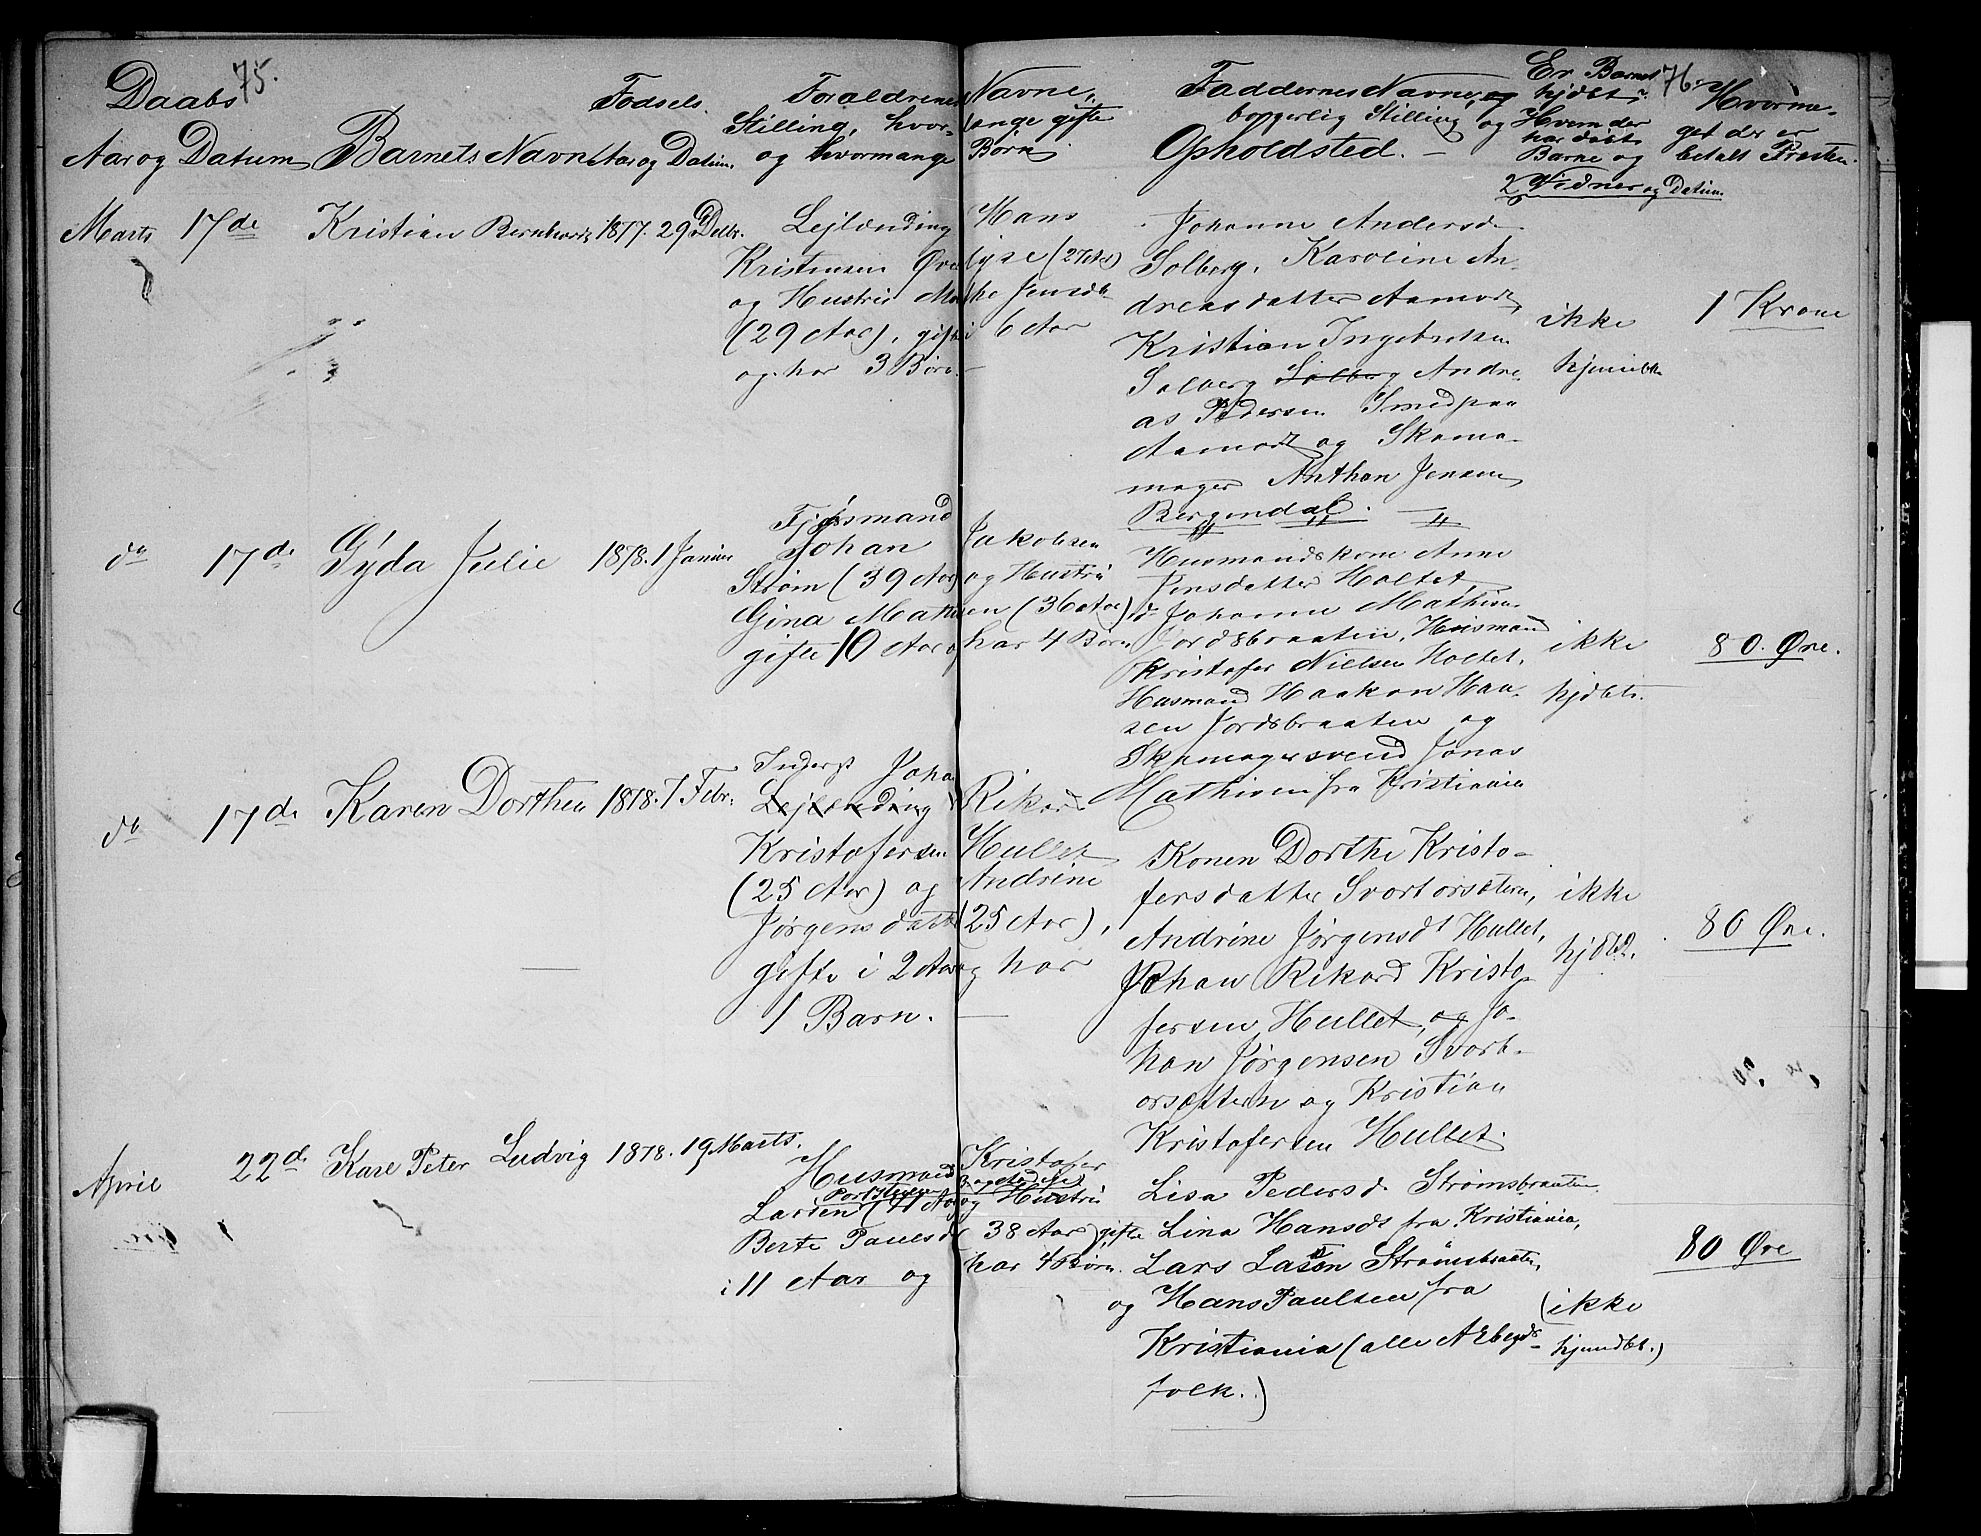 75.
76.
Daabs
Aar og Datum
Barnets Navn
Fødsels
Aar og Datum.
Forældrenes Navne,
Stilling, hvor- længe gifte
og hvormange Børn.
Faddernes Navne, og
borgerlig Stilling og
Opholdsted. —
Er Barnet
hjdbt.?
Hvem der
har døbt
Barne og
2 Vidner og Datum.
Hvorme-
get der er
betalt Præsten.
Marts 17de Kristian Bernhard 1877. 29 Decbr.
Lejlænding Hans
Kristensen
og Hustru Jensdt.
(29 Aar), gifte i 6 Aar
og har 3 Børn. —
Johanne Andersd.
Solberg, Karoline An-
dreasdatter Aamodt,
Kristian Ingebretsen
Solberg Solberg Andre-
as Pedersen Smed paa
Aamodt og Skoma-
mager Anthon Jensen
Bergendal. —
ikke
1 Krone
do 17de Gyda Julie 1878. 1 Januar
Fjøsmand
Johan Jakobsen
Strøm (39 Aar) og Hustru
Gina Mathisen (36 Aar)
gifte 10 Aar og har 4 Børn.
Husmandskone Anne
Jensdatter Holtet,
do Johanne Mathisen
Jordsbraaten, Husmand
Kristofer Nielsen Holtet,
Husmand Haakon Han-
sen Jordsbraaten og
Skomagersvend Jonas
Mathisen fra Kristiania
ikke
hjdbt.
80. Øre.
do 17de Karen Dorthea 1878. 7 Febr.
Inderst Johan
Lejlænding Rikard
Kristofersen Hullet
(25 Aar) og Andrine
Jørgensdatter (25 Aar),
gifte i 2 Aar og har
1 Barn. —
Konen Dorthe Kristo-
fersdatter Svortorsæteren,
Andrine Jørgensdt Hullet,
Johan Rikard Kristo-
fersen Hullet, og Jo-
han Jørgensen Svort-
orsættern og Kristian
Kristofersen Hullet.
ikke
hjdbt.
80 Øre.
April 22de Karl Peter Ludvig 1878. 19 Marts.
Husmand Kristofer
Larsen (41 Aar) og Hustru
Berte Paulsd. (38 Aar) gifte
i 11 Aar og har 4 Børn.
Lisa Pedersd. Strømsbraaten.
Lina Hansdt fra Kristiania,
Lars Lasen Strømsbraaten,
og Hans Paulsen fra
Kristiania (alle Arbejds-
folk.)
(ikke
hjemdbt.)
80 Øre